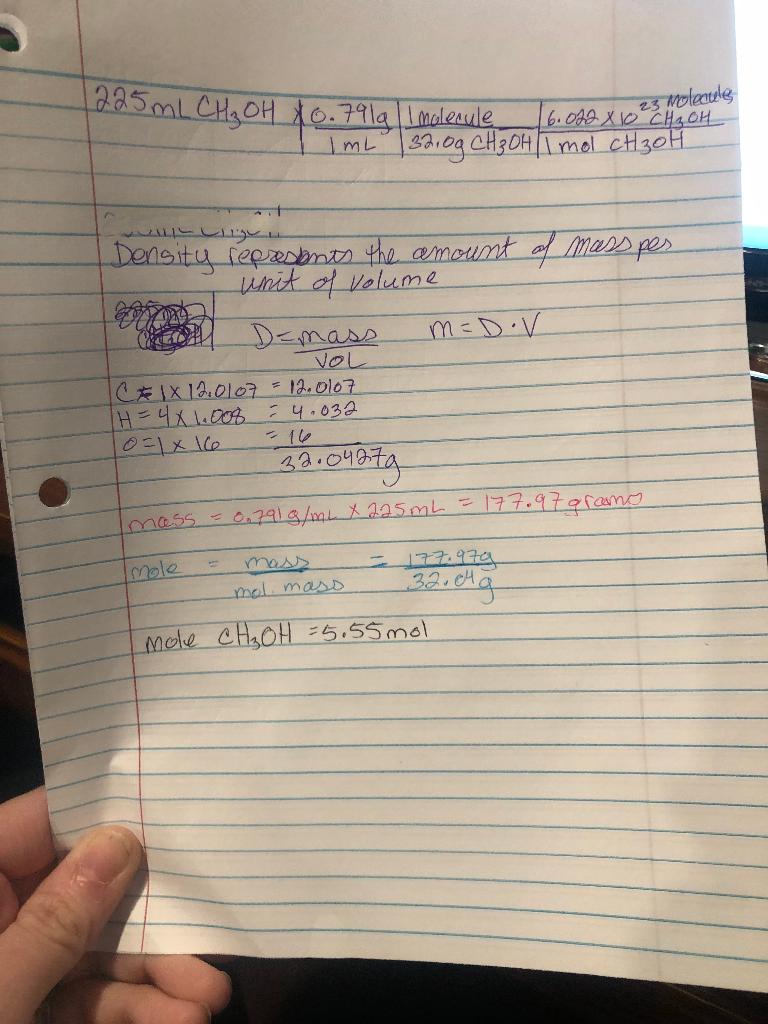 225mL CH3OH x 0.791g | 1 molecule | 6.022 x 10^23 Molecules CH3OH
1 mL | 32.0g CH3OH | 1 mol CH3OH
Density represents the amount of mass per
unit of volume
D = mass / VOL m = D · V
C = 1 x 12.0107 = 12.0107
H = 4 x 1.008 = 4.032
O = 1 x 16 = 16
32.0427g
mass = 0.791g/mL x 225mL = 177.97grams
mole = mass / mol. mass = 177.97g / 32.04g
Mole CH3OH = 5.55mol